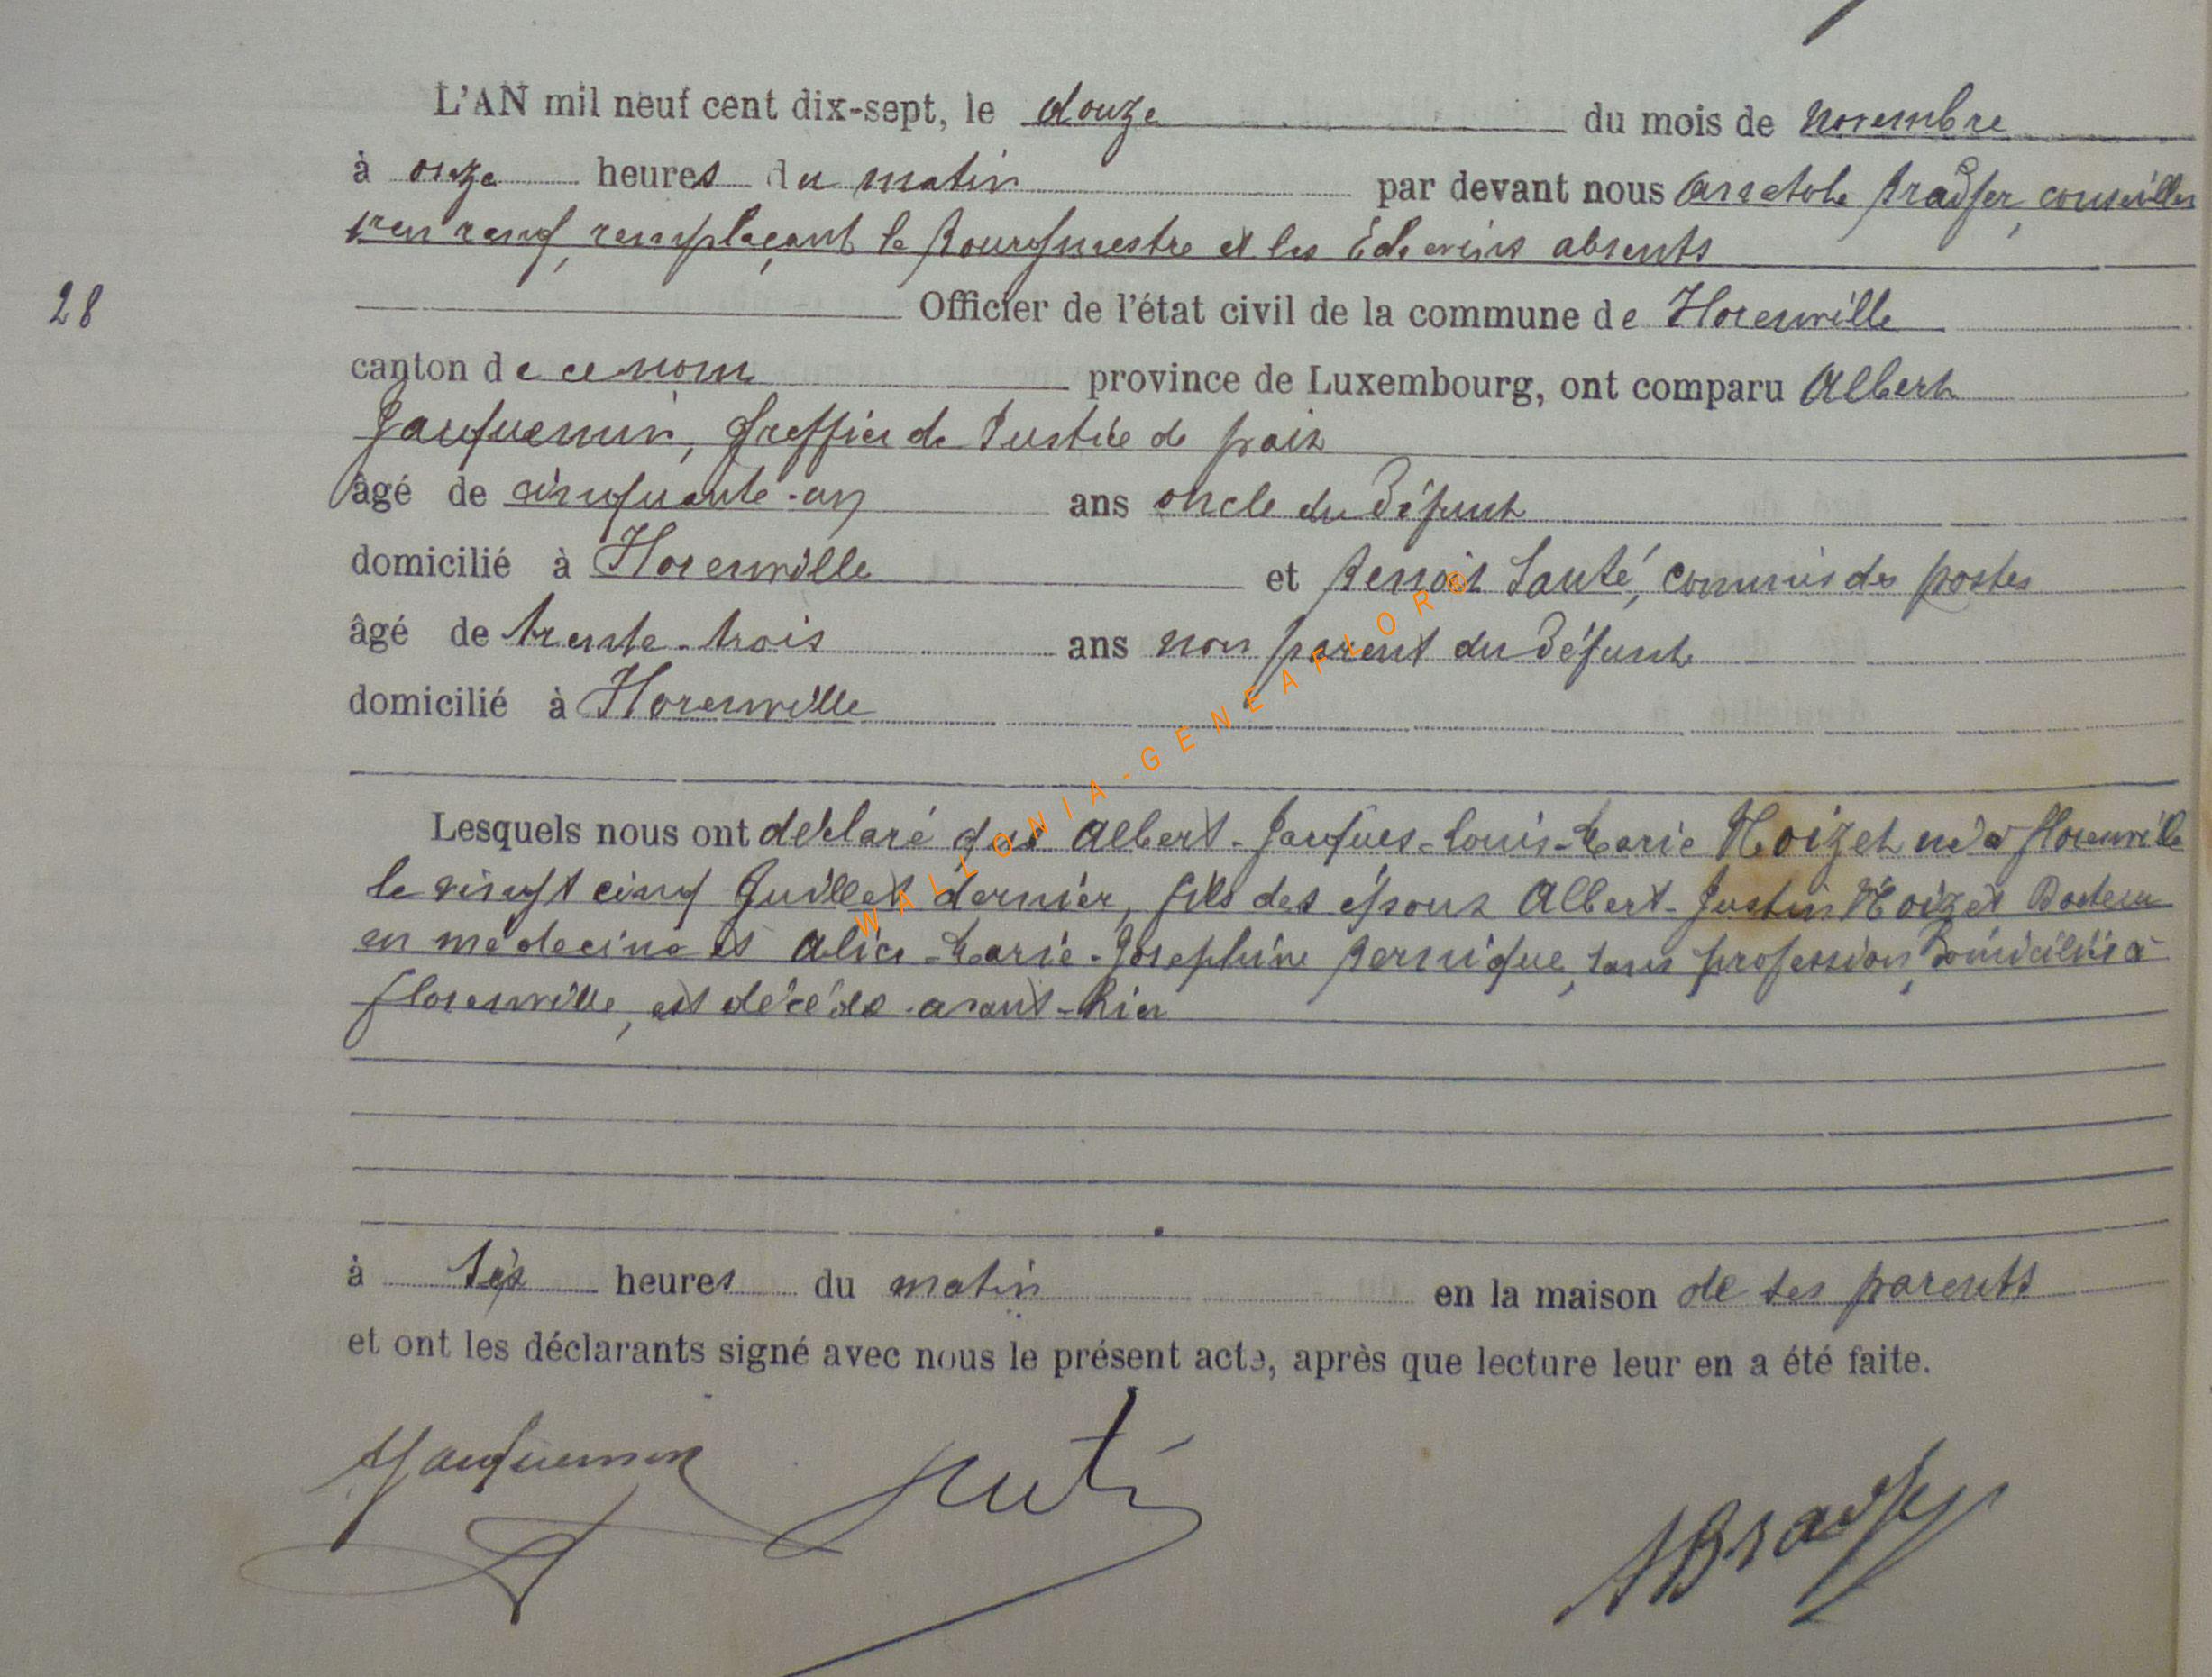 L'AN mil neuf cent dix-sept, le douze du mois de novembre
à onze heures du matin par devant nous Anatole Bradfer, conseiller
1er en rang, remplaçant le Bourgmestre et les Echevins absents
28
Officier de l'état civil de la commune de Florenville
canton de ce nom province de Luxembourg, ont comparu Albert
Jacquemin, Greffier de Justice de paix
âgé de cinquante-un ans oncle du défunt
domicilié à Florenville et Benoit Sauté, commis des postes
âgé de trente-trois ans non parent du défunt
domicilié à Florenville
Lesquels nous ont déclaré que Albert-Jacques-Louis-Marie Noizet né à Florenville
le vingt cinq Juillet dernier, fils des époux Albert-Justin Noizet Docteur
en médecine et Alice-Marie-Joséphine Pernique, sans profession, domiciliés à
Florenville, est décédé avant-hier
à six heures du matin en la maison de ses parents
et ont les déclarants signé avec nous le présent acte, après que lecture leur en a été faite.
Jacquemin Sauté ABradfer
WALLONIA-GENEAFLORE